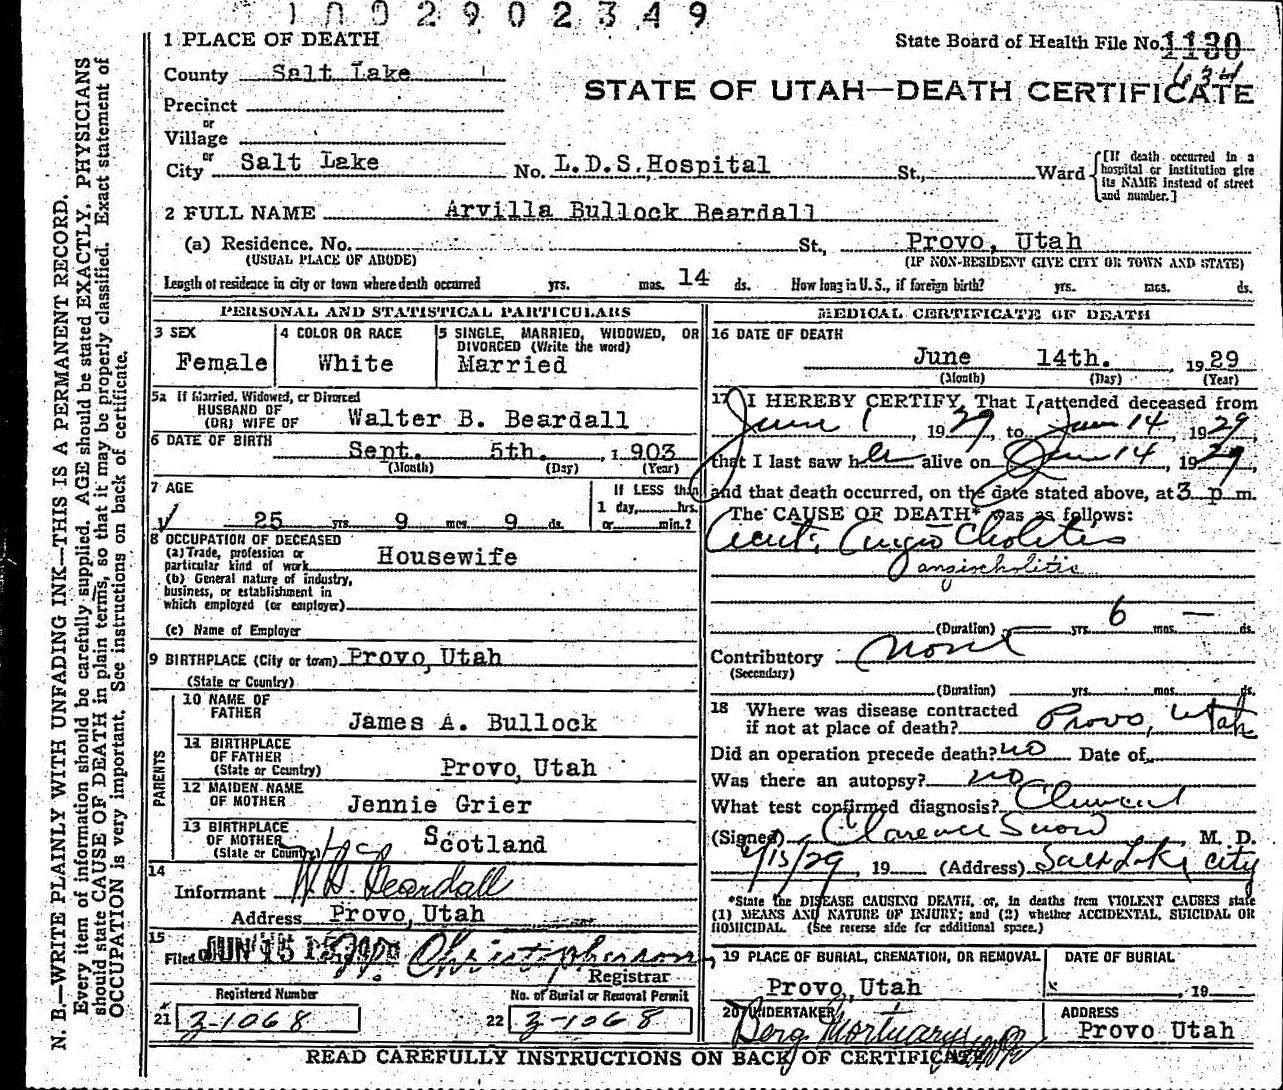 1 0 0 2 9 0 2 3 4 9
1 PLACE OF DEATH
State Board of Health File No. 1130
634
County Salt Lake
STATE OF UTAH—DEATH CERTIFICATE
Precinct
or
Village
or
City Salt Lake No. L.D.S. Hospital St., Ward
[If death occurred in a
hospital or institution give
its NAME instead of street
and number.]
2 FULL NAME Arvilla Bullock Beardall
(a) Residence. No. St., Provo, Utah
(USUAL PLACE OF ABODE) (IF NON-RESIDENT GIVE CITY OR TOWN AND STATE)
Length of residence in city or town where death occurred yrs. mos. 14 ds. How long in U. S., if foreign birth? yrs. mos. ds.
PERSONAL AND STATISTICAL PARTICULARS
3 SEX
Female
4 COLOR OR RACE
White
5 SINGLE, MARRIED, WIDOWED, OR
DIVORCED (Write the word)
Married
5a If Married, Widowed, or Divorced
HUSBAND OF
(OR) WIFE OF Walter B. Beardall
6 DATE OF BIRTH
Sept. 5th. , 1903
(Month) (Day) (Year)
7 AGE
25 yrs. 9 mos. 9 ds.
If LESS than
1 day, hrs.
or min.?
8 OCCUPATION OF DECEASED
(a) Trade, profession or
particular kind of work Housewife
(b) General nature of industry,
business, or establishment in
which employed (or employer)
(c) Name of Employer
9 BIRTHPLACE (City or town) Provo, Utah
(State or Country)
PARENTS
10 NAME OF
FATHER
James A. Bullock
11 BIRTHPLACE
OF FATHER
(State or Country) Provo, Utah
12 MAIDEN NAME
OF MOTHER Jennie Grier
13 BIRTHPLACE
OF MOTHER
(State or Country) Scotland
14
Informant W. B. Beardall
Address Provo, Utah
15
Filed JUN 15 1929 Christopherson
Registrar
Registered Number
21 3-1068
No. of Burial or Removal Permit
22 3-1068
MEDICAL CERTIFICATE OF DEATH
16 DATE OF DEATH
June 14th. 1929
(Month) (Day) (Year)
17 I HEREBY CERTIFY, That I attended deceased from
June 1, 1929, to June 14, 1929
that I last saw her alive on June 14, 1929
and that death occurred, on the date stated above, at 3 p. m.
The CAUSE OF DEATH* was as follows:
Acute Angio Cholitis
angiocholitis
(Duration) yrs. 6 mos. — ds.
Contributory None
(Secondary)
(Duration) yrs. mos. ds.
18 Where was disease contracted
if not at place of death? Provo, Utah
Did an operation precede death? no Date of
Was there an autopsy? no
What test confirmed diagnosis? Clinical
(Signed) Clarence Snow M. D.
6/15/29, 19 (Address) Salt Lake City
*State the DISEASE CAUSING DEATH, or, in deaths from VIOLENT CAUSES state
(1) MEANS AND NATURE OF INJURY; and (2) whether ACCIDENTAL, SUICIDAL OR
HOMICIDAL. (See reverse side for additional space.)
19 PLACE OF BURIAL, CREMATION, OR REMOVAL
Provo, Utah
DATE OF BURIAL
, 19
20 UNDERTAKER
Berg Mortuary
ADDRESS
Provo Utah
READ CAREFULLY INSTRUCTIONS ON BACK OF CERTIFICATE
N. B.—WRITE PLAINLY WITH UNFADING INK—THIS IS A PERMANENT RECORD.
Every item of information should be carefully supplied. AGE should be stated EXACTLY. PHYSICIANS
should state CAUSE OF DEATH in plain terms, so that it may be properly classified. Exact statement of
OCCUPATION is very important. See instructions on back of certificate.